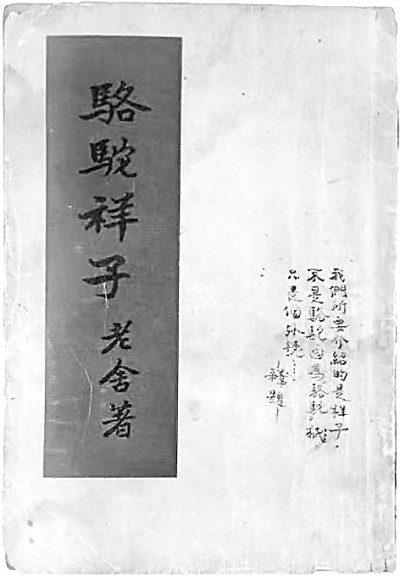 駱駝祥子 老舍著
我們所要介紹的是祥子，
不是駱駝，因為駱駝，
只是個外號…
題